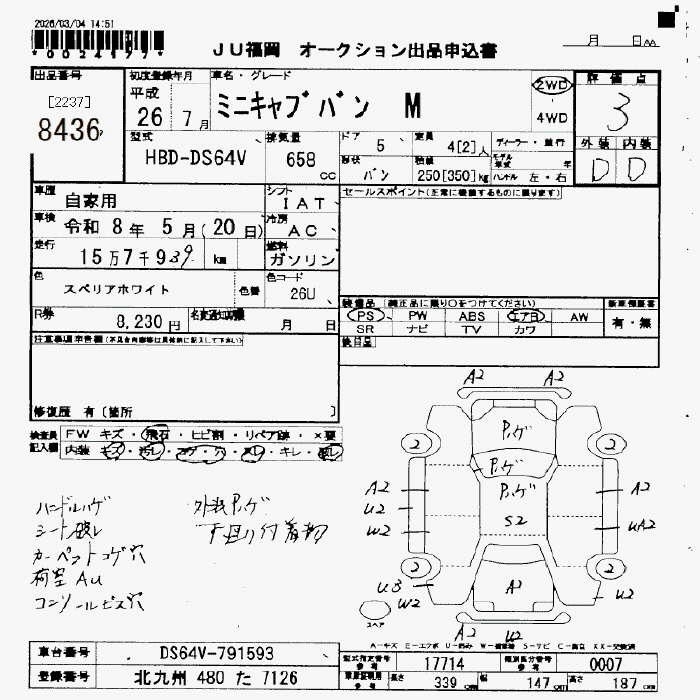 2026/03/04 14:51
*0024977*
JU福岡 オークション出品申込書
月 日
出品番号
[2237]
8436
初度登録年月
平成
26 7月
車名・グレード
ミニキャブバン M
2WD
4WD
評価点
3
外装 内装
D D
型式
HBD-DS64V
排気量
658 cc
ドア
5
定員
4[2]人
ディーラー・並行
形状
バン
積載
250[350]kg
モデル年式 年
ハンドル 左・右
車歴
自家用
シフト
IAT
車検
令和 8年 5月(20日)
冷房
AC
走行
15万7千939 km
燃料
ガソリン
色
スペリアホワイト
色番
色コード
26U
R券
8,230円
名変通知期限
月 日
セールスポイント(正常に機能するものに限ります)
装備品 (純正品に限り○をつけてください)
新車保証書
PS PW ABS エアB AW
SR ナビ TV カワ
有・無
後日品
注意事項申告欄(不具合内容等は具体的に記入して下さい)
修復歴 有〔箇所 〕
検査員記入欄
FW キズ・飛石・ヒビ割・リペア跡・×要
内装 キズ・汚レ・コゲ・穴・スレ・キレ・破レ
ハンドルハゲ
シート破レ
カーペットコゲ穴
荷室AU
コンソールビス穴
外装Pハゲ
下廻り付着物
A2 A2
Pハゲ
2 2
Pハゲ
Pハゲ
A2
U2
W2
S2
A2
UA2
2 2
U3
W2
A2
U2
A2 W2
スペア
A-キズ E-エクボ U-凹み W-補修跡 S-サビ C-腐食 XX-交換済
車台番号
DS64V-791593
登録番号
北九州 480 た 7126
型式指定番号 参考
17714
類別区分番号 参考
0007
車庫証明用 参考
長さ 339 cm
幅 147 cm
高さ 187 cm